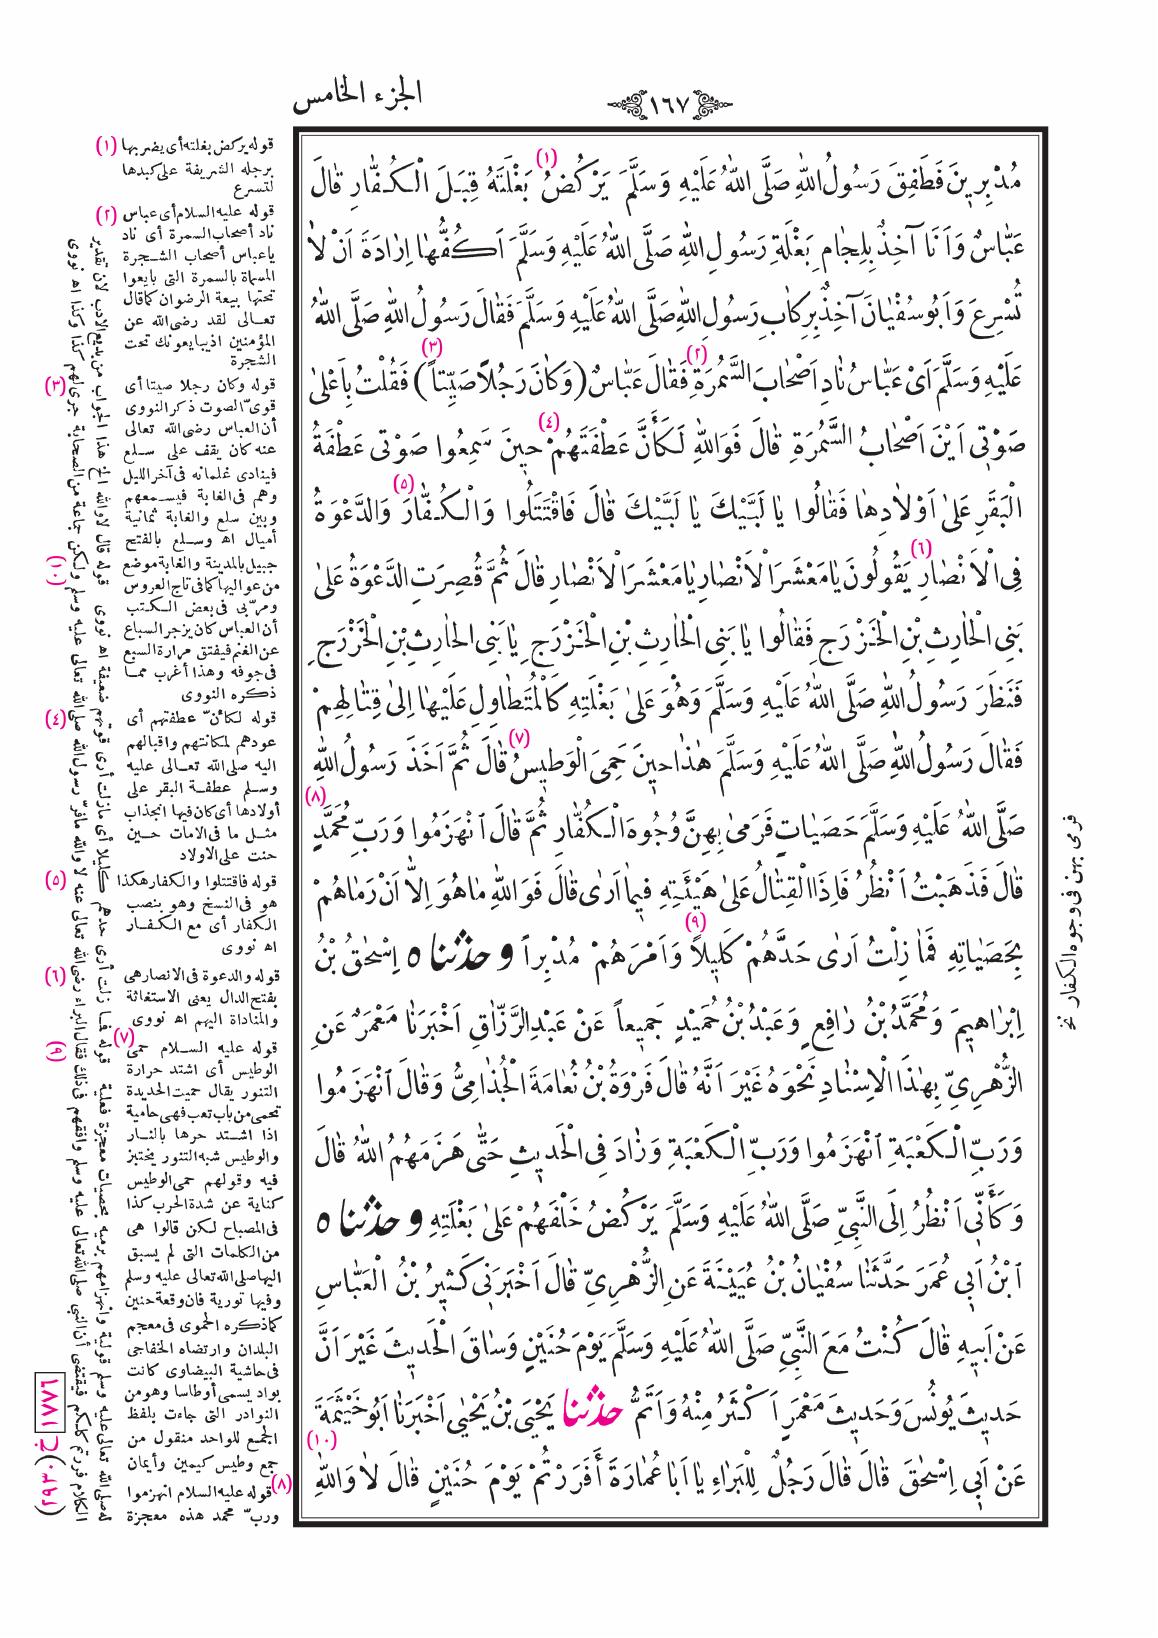 ١٦٧
الجزء الخامس
مُدْبِرِينَ فَطَفِقَ رَسُولُ اللهِ صَلَّى اللهُ عَلَيْهِ وَسَلَّمَ يَرْكُضُ (١) بَغْلَتَهُ قِبَلَ الْكُفَّارِ قَالَ
عَبَّاسٌ وَاَنَا آخِذٌ بِلِجَامِ بَغْلَةِ رَسُولِ اللهِ صَلَّى اللهُ عَلَيْهِ وَسَلَّمَ اَكُفُّهَا اِرَادَةَ اَنْ لَا
تُسْرِعَ وَاَبُو سُفْيَانَ آخِذٌ بِرِكَابِ رَسُولِ اللهِ صَلَّى اللهُ عَلَيْهِ وَسَلَّمَ فَقَالَ رَسُولُ اللهِ صَلَّى اللهُ
عَلَيْهِ وَسَلَّمَ اَىْ عَبَّاسُ نَادِ اَصْحَابَ السَّمُرَةِ (٢) فَقَالَ عَبَّاسٌ (وَكَانَ رَجُلاً صَيِّتاً (٣)) فَقُلْتُ بِاَعْلَى
صَوْتِى اَيْنَ اَصْحَابُ السَّمُرَةِ قَالَ فَوَاللهِ لَكَأَنَّ عَطْفَتَهُمْ (٤) حِينَ سَمِعُوا صَوْتِى عَطْفَةُ
الْبَقَرِ عَلَى اَوْلَادِهَا فَقَالُوا يَا لَبَّيْكَ يَا لَبَّيْكَ قَالَ فَاقْتَتَلُوا وَالْكُفَّارَ (٥) وَالدَّعْوَةُ
فِى الْاَنْصَارِ (٦) يَقُولُونَ يَا مَعْشَرَ الْاَنْصَارِ يَا مَعْشَرَ الْاَنْصَارِ قَالَ ثُمَّ قُصِرَتِ الدَّعْوَةُ عَلَى
بَنِى الْحَارِثِ بْنِ الْخَزْرَجِ فَقَالُوا يَا بَنِى الْحَارِثِ بْنِ الْخَزْرَجِ يَا بَنِى الْحَارِثِ بْنِ الْخَزْرَجِ
فَنَظَرَ رَسُولُ اللهِ صَلَّى اللهُ عَلَيْهِ وَسَلَّمَ وَهُوَ عَلَى بَغْلَتِهِ كَالْمُتَطَاوِلِ عَلَيْهَا اِلَى قِتَالِهِمْ
فَقَالَ رَسُولُ اللهِ صَلَّى اللهُ عَلَيْهِ وَسَلَّمَ هٰذَا حِينَ حَمِىَ الْوَطِيسُ (٧) قَالَ ثُمَّ اَخَذَ رَسُولُ اللهِ
صَلَّى اللهُ عَلَيْهِ وَسَلَّمَ حَصَيَاتٍ فَرَمَى بِهِنَّ وُجُوهَ الْكُفَّارِ ثُمَّ قَالَ انْهَزَمُوا وَرَبِّ مُحَمَّدٍ (٨)
قَالَ فَذَهَبْتُ اَنْظُرُ فَاِذَا الْقِتَالُ عَلَى هَيْئَتِهِ فِيمَا اَرَى قَالَ فَوَاللهِ مَا هُوَ اِلاَّ اَنْ رَمَاهُمْ
بِحَصَيَاتِهِ فَمَا زِلْتُ اَرَى حَدَّهُمْ كَلِيلاً (٩) وَاَمْرَهُمْ مُدْبِراً وحدثناه اِسْحٰقُ بْنُ
اِبْرَاهِيمَ وَمُحَمَّدُ بْنُ رَافِعٍ وَعَبْدُ بْنُ حُمَيْدٍ جَمِيعاً عَنْ عَبْدِ الرَّزَّاقِ اَخْبَرَنَا مَعْمَرٌ عَنِ
الزُّهْرِىِّ بِهٰذَا الْاِسْنَادِ نَحْوَهُ غَيْرَ اَنَّهُ قَالَ فَرْوَةُ بْنُ نُعَامَةَ الْجُذَامِىُّ وَقَالَ انْهَزَمُوا
وَرَبِّ الْكَعْبَةِ انْهَزَمُوا وَرَبِّ الْكَعْبَةِ وَزَادَ فِى الْحَدِيثِ حَتَّى هَزَمَهُمُ اللهُ قَالَ
وَكَأَنِّى اَنْظُرُ اِلَى النَّبِىِّ صَلَّى اللهُ عَلَيْهِ وَسَلَّمَ يَرْكُضُ خَلْفَهُمْ عَلَى بَغْلَتِهِ وحدثناه
ابْنُ اَبِى عُمَرَ حَدَّثَنَا سُفْيَانُ بْنُ عُيَيْنَةَ عَنِ الزُّهْرِىِّ قَالَ اَخْبَرَنِى كَثِيرُ بْنُ الْعَبَّاسِ
عَنْ اَبِيهِ قَالَ كُنْتُ مَعَ النَّبِىِّ صَلَّى اللهُ عَلَيْهِ وَسَلَّمَ يَوْمَ حُنَيْنٍ وَسَاقَ الْحَدِيثَ غَيْرَ اَنَّ
حَدِيثَ يُونُسَ وَحَدِيثَ مَعْمَرٍ اَكْثَرُ مِنْهُ وَاَتَمُّ حدثنا يَحْيَى بْنُ يَحْيَى اَخْبَرَنَا اَبُو خَيْثَمَةَ
عَنْ اَبِى اِسْحٰقَ قَالَ قَالَ رَجُلٌ لِلْبَرَاءِ يَا اَبَا عُمَارَةَ أَفَرَرْتُمْ يَوْمَ حُنَيْنٍ قَالَ لَا وَاللهِ (١٠)
فرمى بهن فى وجوه الكفار نخ
(١) قوله يركض بغلته أى يضربها
برجله الشريفة على كبدها
لتسرع
(٢) قوله عليه السلام أى عباس
ناد أصحاب السمرة أى ناد
ياعباس أصحاب الشجرة
المسماة بالسمرة التى بايعوا
تحتها بيعة الرضوان كما قال
تعالى لقد رضى الله عن
المؤمنين اذ يبايعونك تحت
الشجرة
(٣) قوله وكان رجلا صيتا أى
قوىّ الصوت ذكر النووى
أن العباس رضى الله تعالى
عنه كان يقف على سلع
فينادى غلمانه فى آخر الليل
وهم فى الغابة فيسمعهم
وبين سلع والغابة ثمانية
أميال اه وسلع بالفتح
جبيل بالمدينة والغابة موضع
من عواليها كما فى تاج العروس
ومرّ بى فى بعض الكتب
أن العباس كان يزجر السباع
عن الغنم فيفتق مرارة السبع
فى جوفه وهذا أغرب مما
ذكره النووى
(٤) قوله لكأنّ عطفتهم أى
عودهم لمكانتهم واقبالهم
اليه صلى الله تعالى عليه
وسلم عطفة البقر على
أولادها أى كان فيها انجذاب
مثل ما فى الامات حين
حنت على الاولاد
(٥) قوله فاقتتلوا والكفار هكذا
هو فى النسخ وهو بنصب
الكفار أى مع الكفار
اه نووى
(٦) قوله والدعوة فى الانصار هى
بفتح الدال يعنى الاستغاثة
والمناداة اليهم اه نووى
(٧) قوله عليه السلام حمى
الوطيس أى اشتد حرارة
التنور يقال حميت الحديدة
تحمى من باب تعب فهى حامية
اذا اشتد حرها بالنار
والوطيس شبه التنور يختبز
فيه وقولهم حمى الوطيس
كناية عن شدة الحرب كذا
فى المصباح لكن قالوا هى
من الكلمات التى لم يسبق
اليها صلى الله تعالى عليه وسلم
وفيها تورية فان وقعة حنين
كما ذكره الحموى فى معجم
البلدان وارتضاه الخفاجى
فى حاشية البيضاوى كانت
بواد يسمى أوطاسا وهو من
النوادر التى جاءت بلفظ
الجمع للواحد منقول من
جمع وطيس كيمين وأيمان
(٨) قوله عليه السلام انهزموا
ورب محمد هذه معجزة
له صلى الله تعالى عليه وسلم قولية وانهزامهم برميه بحصيات معجزة فعلية (٩) قوله فما زلت أرى حدهم كليلا أى مازلت أرى قوتهم ضعيفة اه نووى (١٠) قوله قال لا والله الخ هذا الجواب من بديع الادب لان تقدير
الكلام فررتم كلكم فيقتضى أن النبى صلى الله تعالى عليه وسلم وافقهم فى ذلك فقال البراء رضى الله تعالى عنه لا والله مافرّ رسول الله صلى الله تعالى عليه وسلم ولكن جماعة من الصحابة جرى لهم كذا وكذا اه نووى